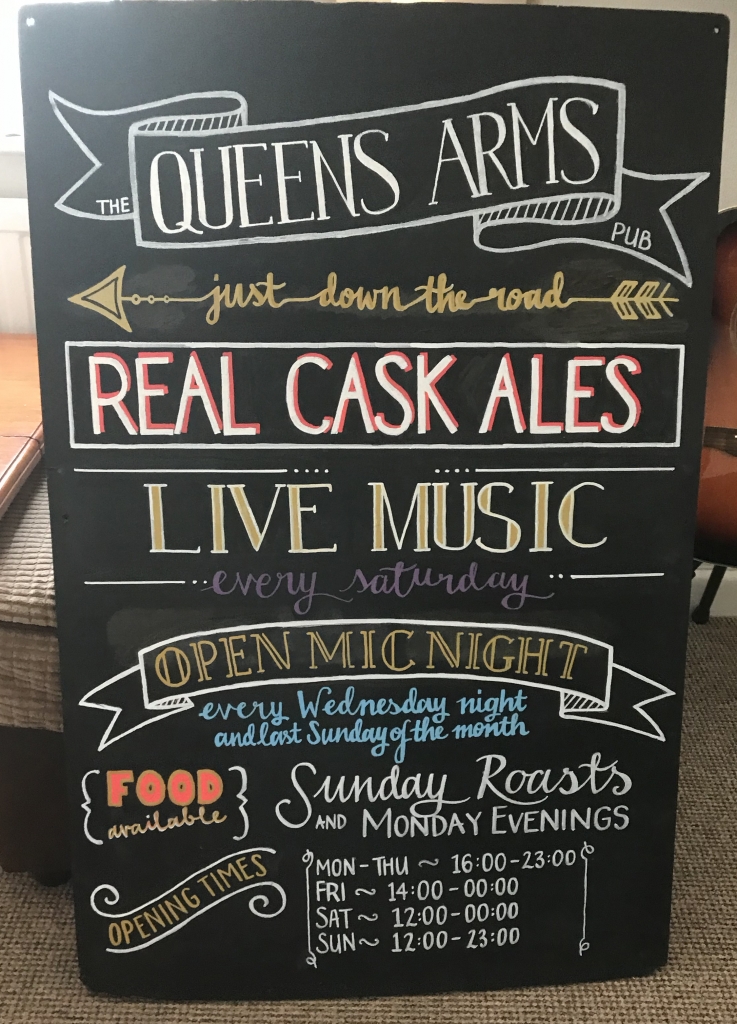 THE QUEENS ARMS PUB
just down the road
REAL CASK ALES
LIVE MUSIC
every saturday
OPEN MIC NIGHT
every Wednesday night
and last Sunday of the month
FOOD
available
Sunday Roasts
AND MONDAY EVENINGS
OPENING TIMES
MON-THU ~ 16:00-23:00
FRI ~ 14:00-00:00
SAT ~ 12:00-00:00
SUN ~ 12:00-23:00